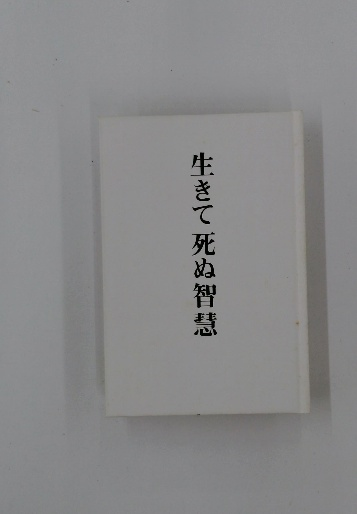 生きて死ぬ智慧